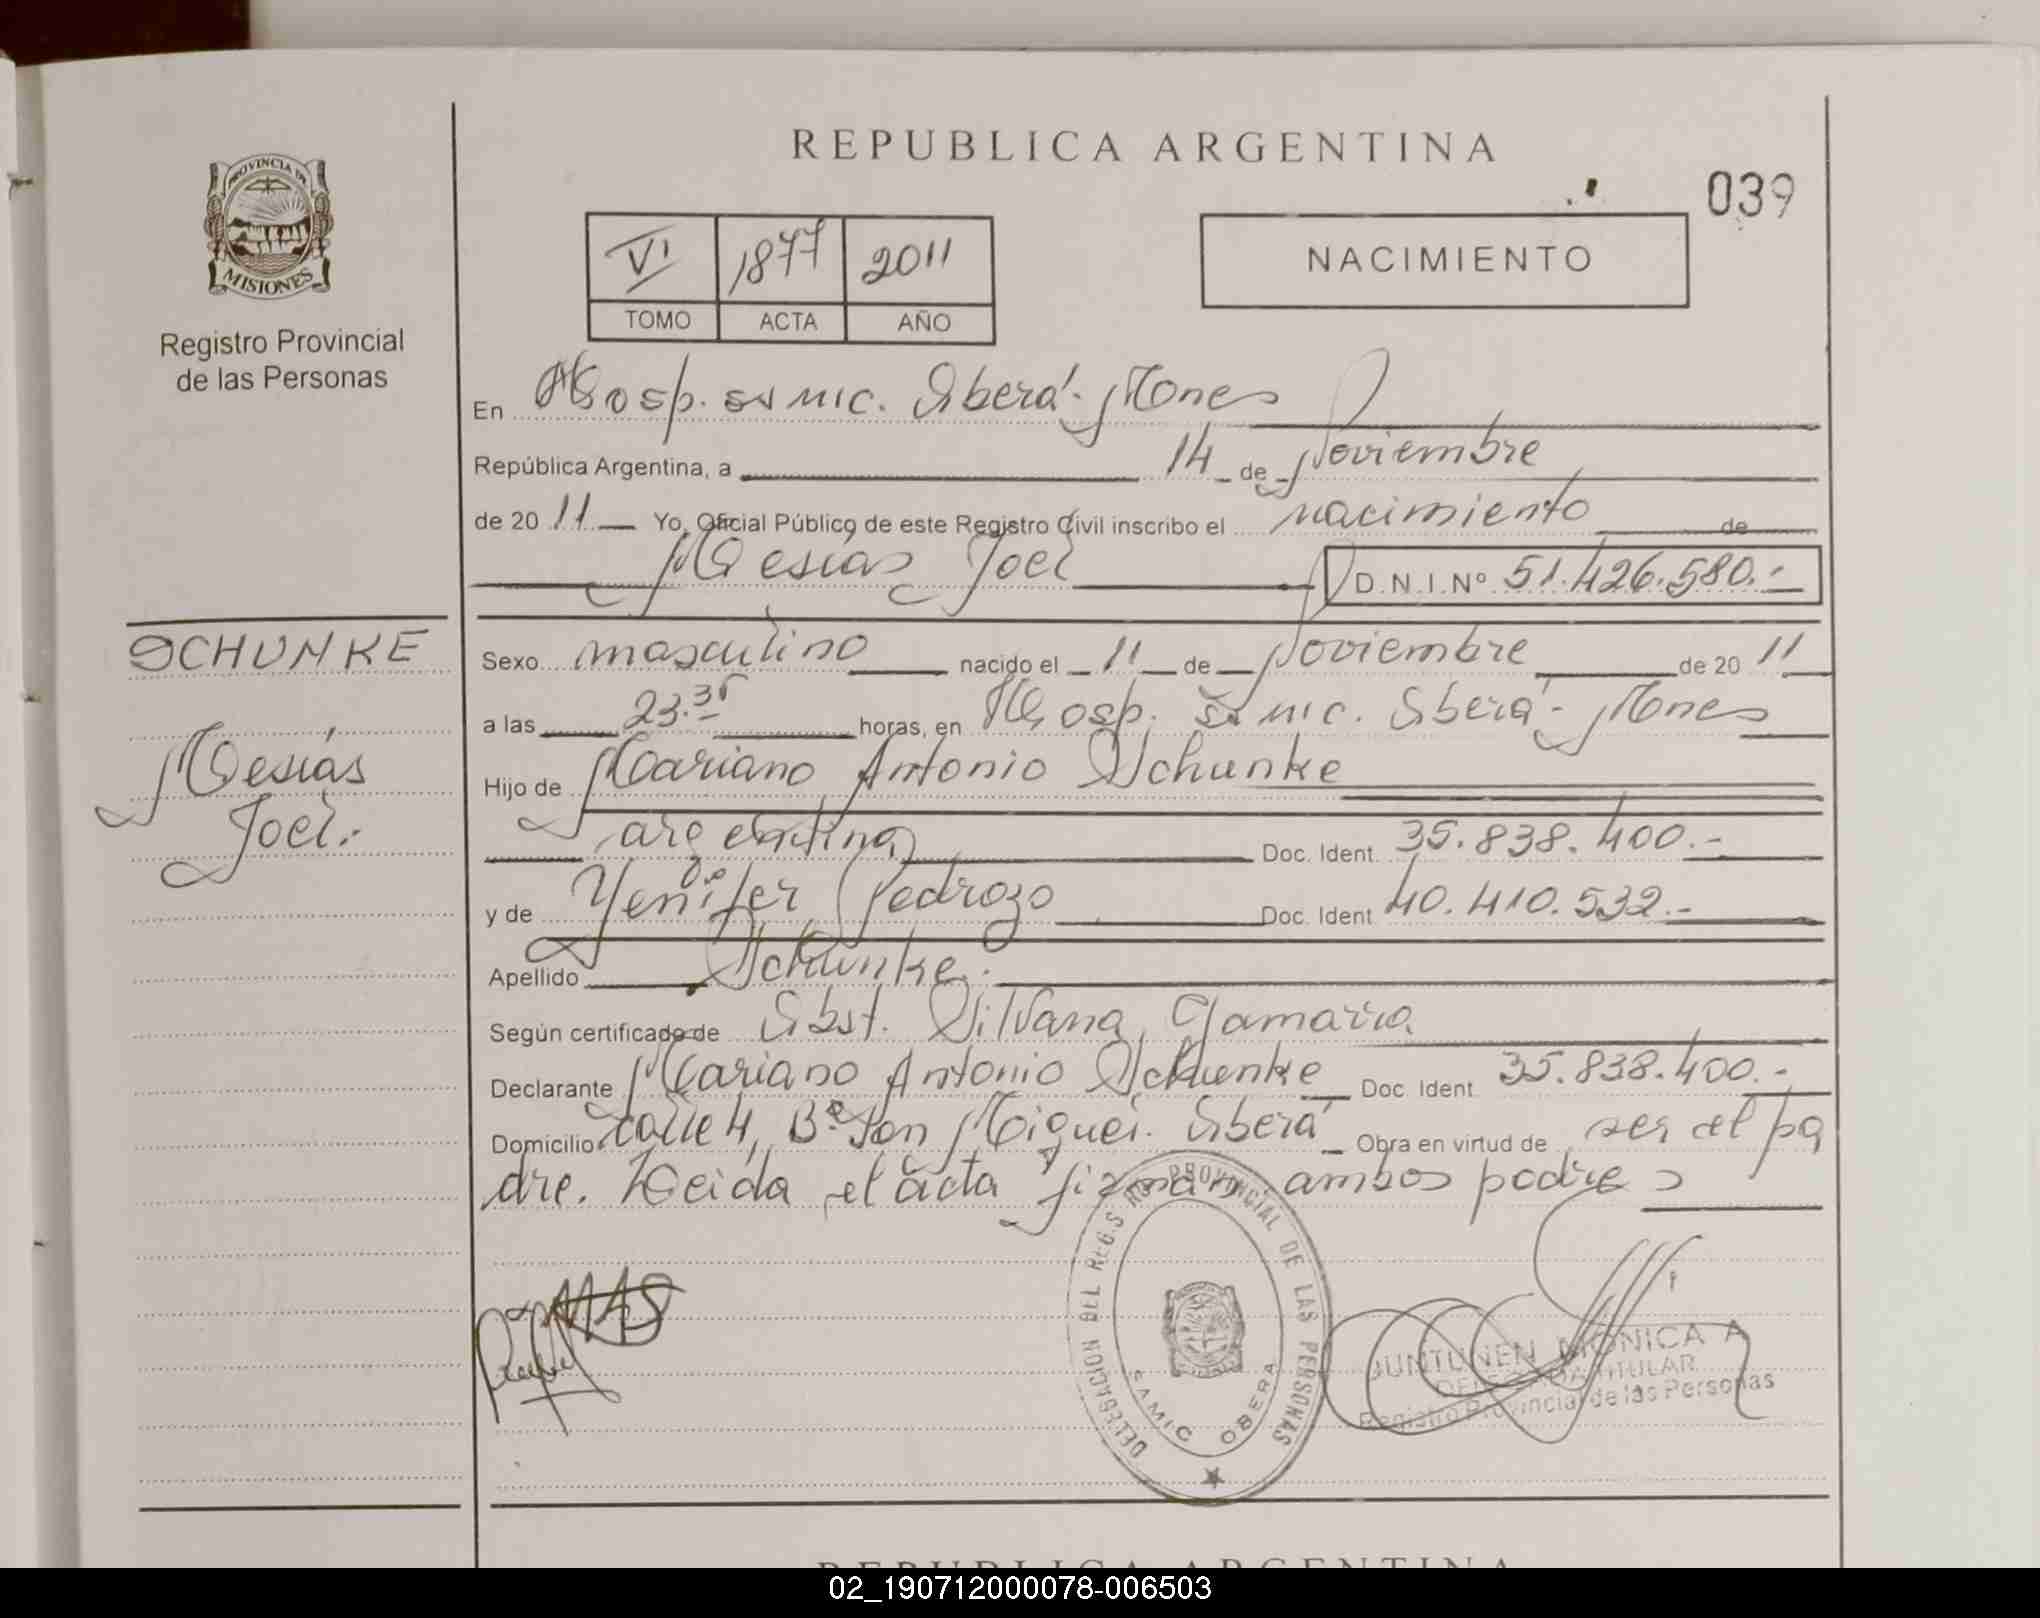 REPUBLICA ARGENTINA
039
PROVINCIA DE
MISIONES
Registro Provincial
de las Personas
VI 1877 2011
TOMO ACTA AÑO
NACIMIENTO
En Hosp. Samic. Oberá - Mnes
República Argentina, a 14 de Noviembre
de 20 11 Yo, Oficial Público de este Registro Civil inscribo el nacimiento de
Mesías Joel D.N.I.Nº 51.426.580.-
SCHUNKE
Mesías
Joel.-
Sexo masculino nacido el 11 de Noviembre de 20 11
a las 23.35 horas, en Hosp. Samic. Oberá - Mnes
Hijo de Mariano Antonio Schunke
argentina Doc. Ident. 35.838.400.-
y de Yenifer Pedrozo Doc. Ident 40.410.532.-
Apellido Schunke.-
Según certificado de Obst. Silvana Gamarra
Declarante Mariano Antonio Schunke Doc Ident 35.838.400.-
Domicilio Calle 4, Bº San Miguel. Oberá Obra en virtud de ser el pa
dre. Leida el acta firman ambos padres
MAS
DELEGACION DEL REG.S PROVINCIAL DE LAS PERSONAS
SAMIC OBERA
JUNTUNEN MONICA A
DELEGADA TITULAR
Registro Provincial de las Personas
REPUBLICA ARGENTINA
02_190712000078-006503